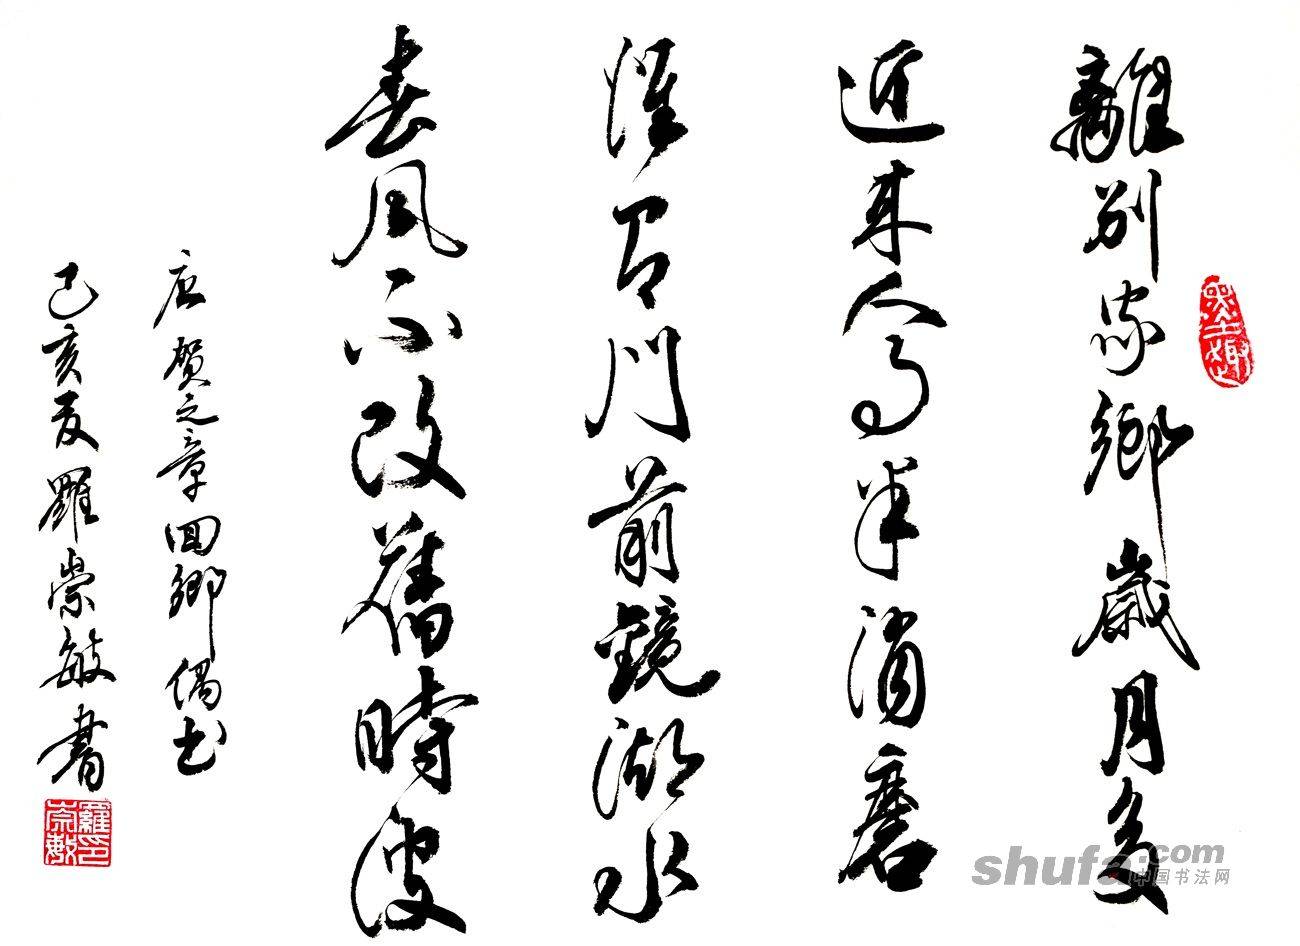 離別家鄉歲月多
近来人事半消磨
惟有門前鏡湖水
春風不改舊時波
唐贺之章回鄉偶书
己亥夏羅崇敏書
羅印崇敏
shufa.com
中国书法网